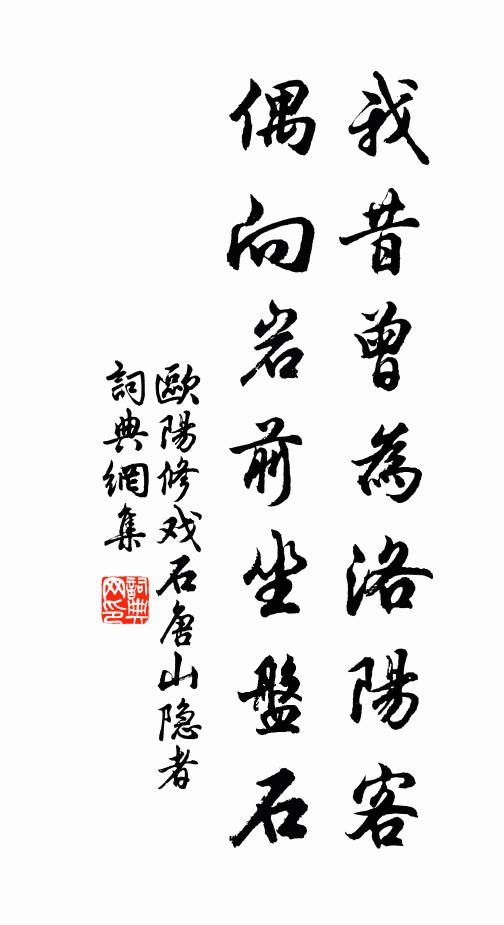 我昔曾為洛陽客
偶向岩前坐盤石
歐陽修戏石唐山隐者
詞典網集
詞典網印